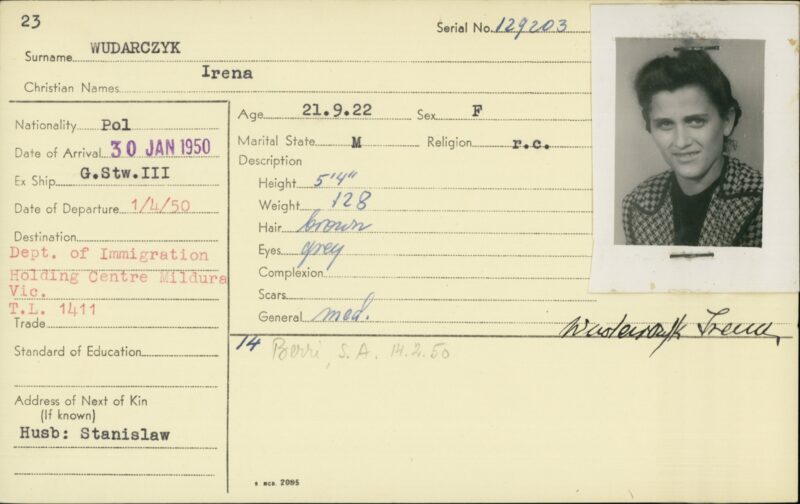 23
Serial No. 129203
Surname WUDARCZYK
Christian Names Irena
Nationality Pol
Date of Arrival 30 JAN 1950
Ex Ship G.Stw.III
Date of Departure 1/4/50
Destination
Dept. of Immigration
Holding Centre Mildura
Vic.
T.L. 1411
Trade
Standard of Education
Address of Next of Kin
(If known)
Husb: Stanislaw
Age 21.9.22 Sex F
Marital State M Religion r.c.
Description
Height 5'4"
Weight 128
Hair brown
Eyes grey
Complexion
Scars
General med.
Wudarczyk Irena
14 Berri, S.A. 14.2.50
2095